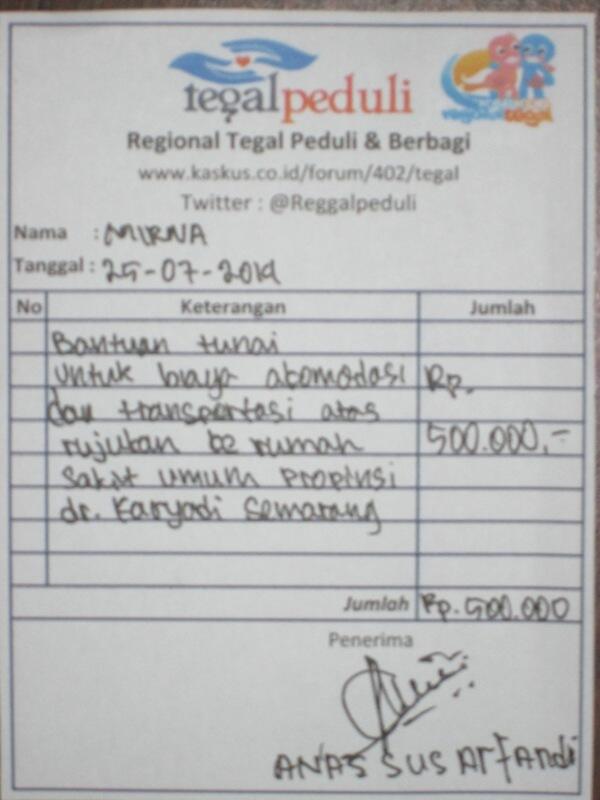 tegalpeduli
Regional Tegal Peduli & Berbagi
www.kaskus.co.id/forum/402/tegal
Twitter : @Reggalpeduli
Nama : MIRNA
Tanggal : 25-07-2014
No Keterangan Jumlah
Bantuan tunai
untuk biaya akomodasi Rp.
dan transportasi atas
rujukan ke rumah 500.000,-
sakit umum Propinsi
dr. Karyadi Semarang
Jumlah Rp. 500.000
Penerima
ANAS SUS ArFandi